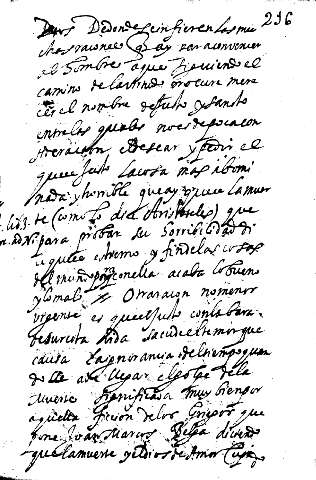 236
Dios Dedonde se infieren las mu
chas raçones q̃ ay para convencer
el hombre a que siguiendo el
camino de la virtud procure mere
cer el nombre de justo y santo
entre las quales no es de poca con
sideracion el desear y pedir el
que es justo la cosa mas abomi
nada y horrible que ay que es la muer
te (como lo dice Aristoteles) que
lib. 3.
para probar su horribilidad di
ce que es estremo y fin de las cosas
del mundo porq̃ con ella acaba lo bueno
y lo malo Otra raçon no menos
urgente es que el justo con la bara
de su recta vida sacude el temor que
causa la ignorancia del tiempo quan
do le a de llegar el golpe de la
muerte significada muy bien por
aquella ficion de los Griegos que
pone Juan Marcos diciendo
que la muerte y el Dios de Amor Cupi